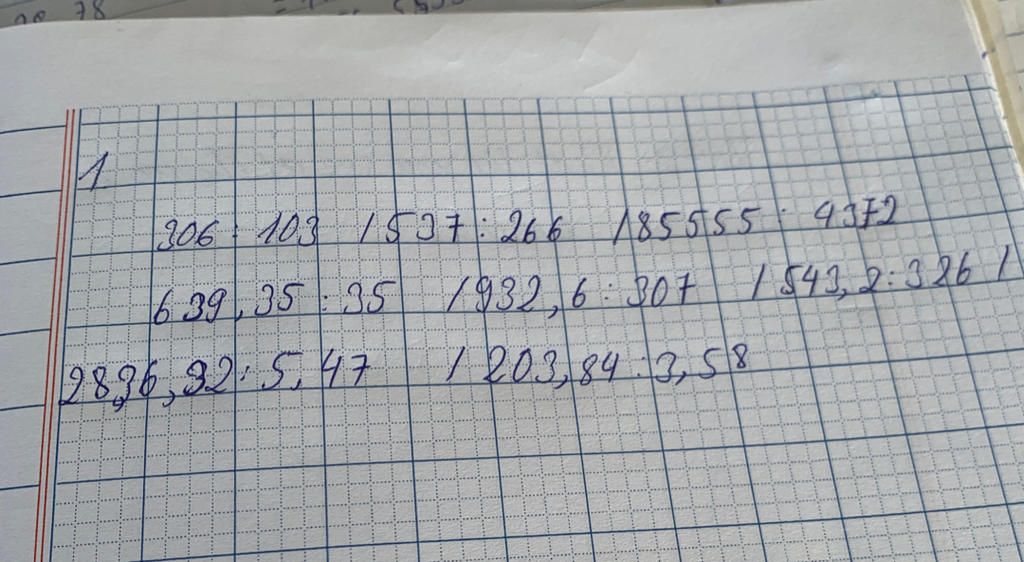 78
1
306 : 103 / 537 : 266 / 85555 : 4372
639,35 : 35 / 932,6 : 307 / 543,2 : 326 /
2836,92 : 5,47 / 203,84 : 3,58